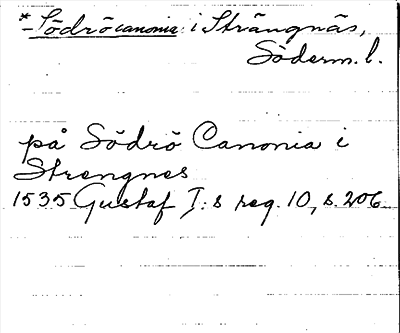 *-Södrö canonia i Strängnäs,
Söderm. l.
på Södrö Canonia i
Strengnes
1535 Gustaf I:s reg. 10, s. 206